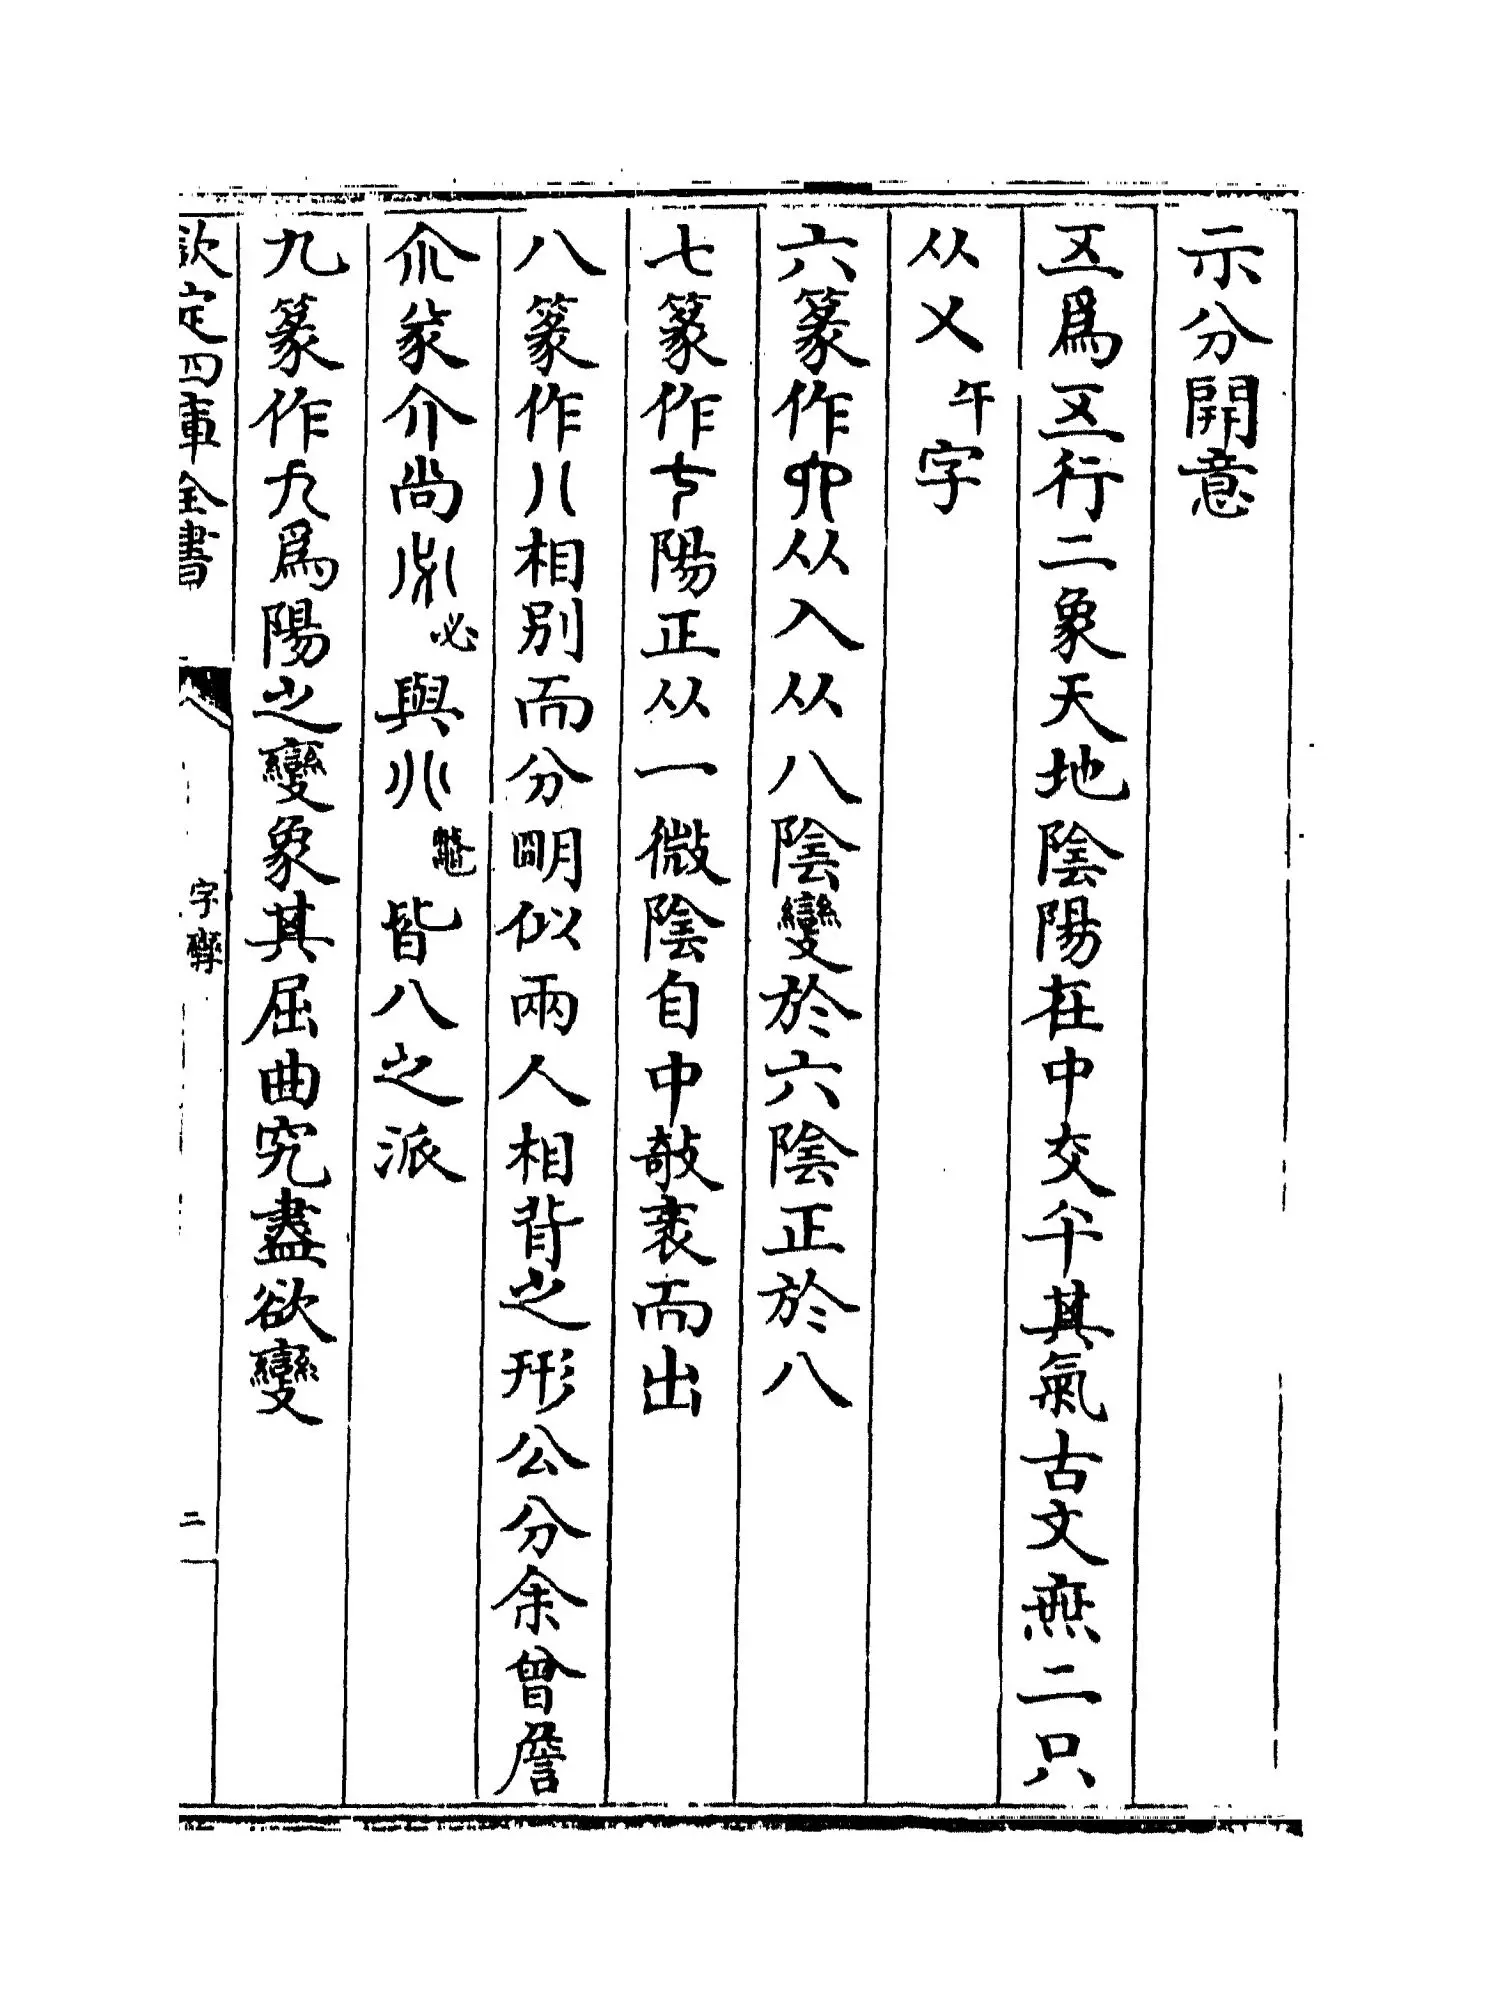 示分開意
𠄡爲𠄡行二象天地陰陽在中交午其氣古文無二只
从㐅午字
六篆作𠫪从入从八陰變於六陰正於八
七篆作𠀁陽正从一微陰自中敧衺而出
八篆作八相別而分明似兩人相背之形公分余曾詹
㒸介尚必與皆八之派
九篆作九爲陽之變象其屈曲究盡欲變
欽定四庫全書
字孿
二